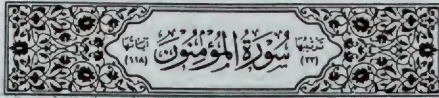 ترتيبها (٢٣) سُورَةُ المُؤْمِنُونَ آياتها (١١٨)